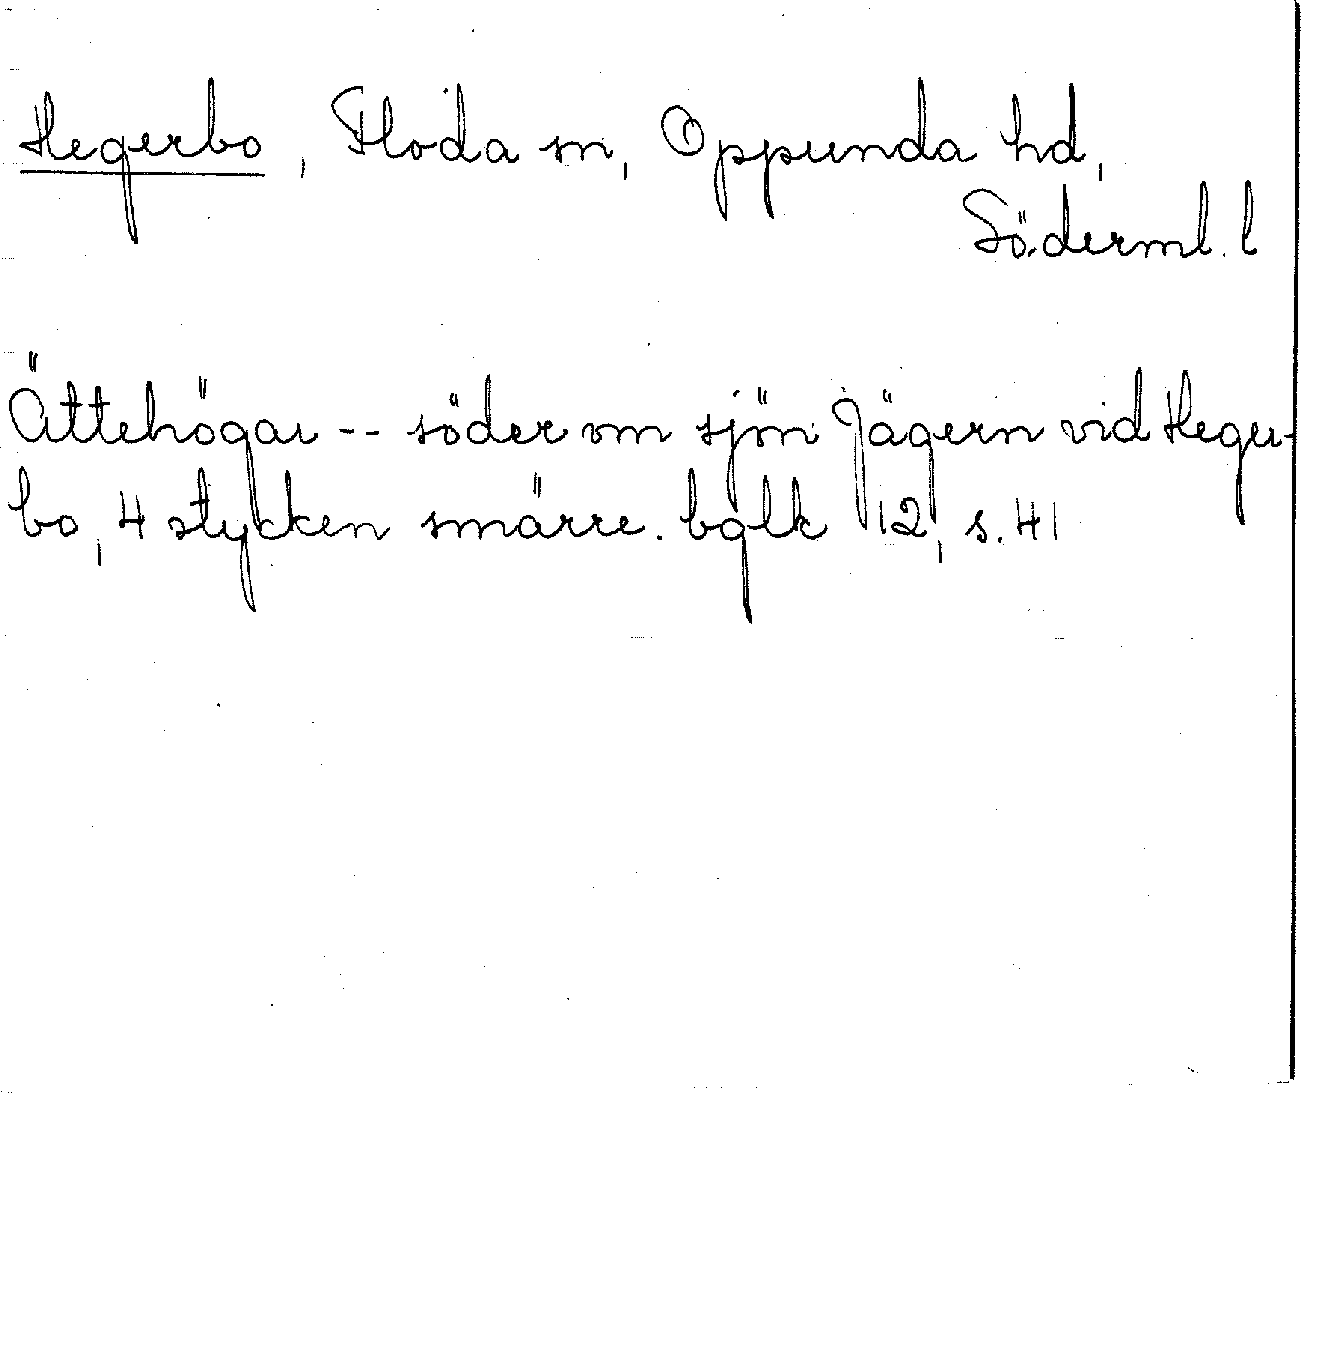 Hegerbo, Floda sn, Oppunda hd,
Söderml. l
Ättehögar -- söder om sjön Jägern vid Heger-
bo, 4 stycken smärre. bglk 12, s. 41